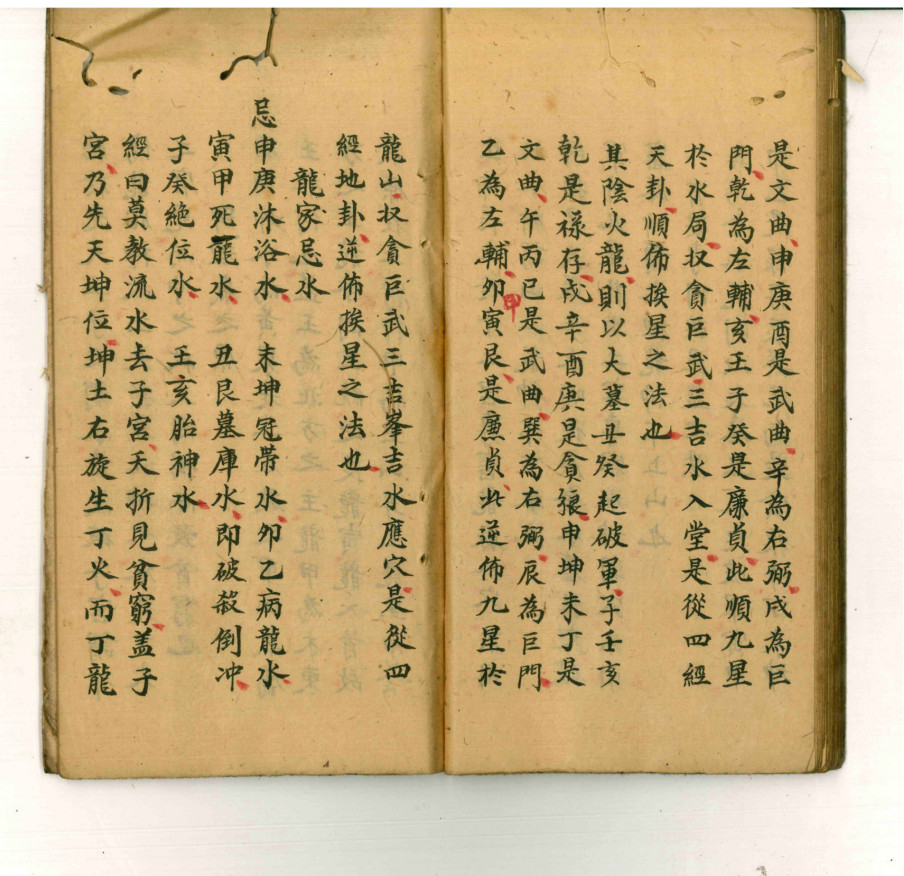 是文曲申庚酉是武曲辛為右弼戌為巨
門乾為左輔亥王子癸是廉貞此順九星
於水局収貪巨武三吉水入堂是從四經
天卦順佈挨星之法也
其陰火龍則以大墓丑癸起破軍子壬亥
乾是祿存戌辛酉庚是貪狼申坤未丁是
文曲午丙巳是武曲巽為右弼辰為巨門
乙為左輔卯甲寅艮是廉貞此逆佈九星於
龍山収貪巨武三吉峯吉水應穴是從四
經地卦逆佈挨星之法也
龍家忌水
忌申庚沐浴水未坤冠帶水卯乙病龍水
寅甲死龍水丑艮墓庫水即破殺倒冲
子癸絶位水王亥胎神水
經曰莫教流水去子宮夭折見貧窮盖子
宮乃先天坤位坤土右旋生丁火而丁龍